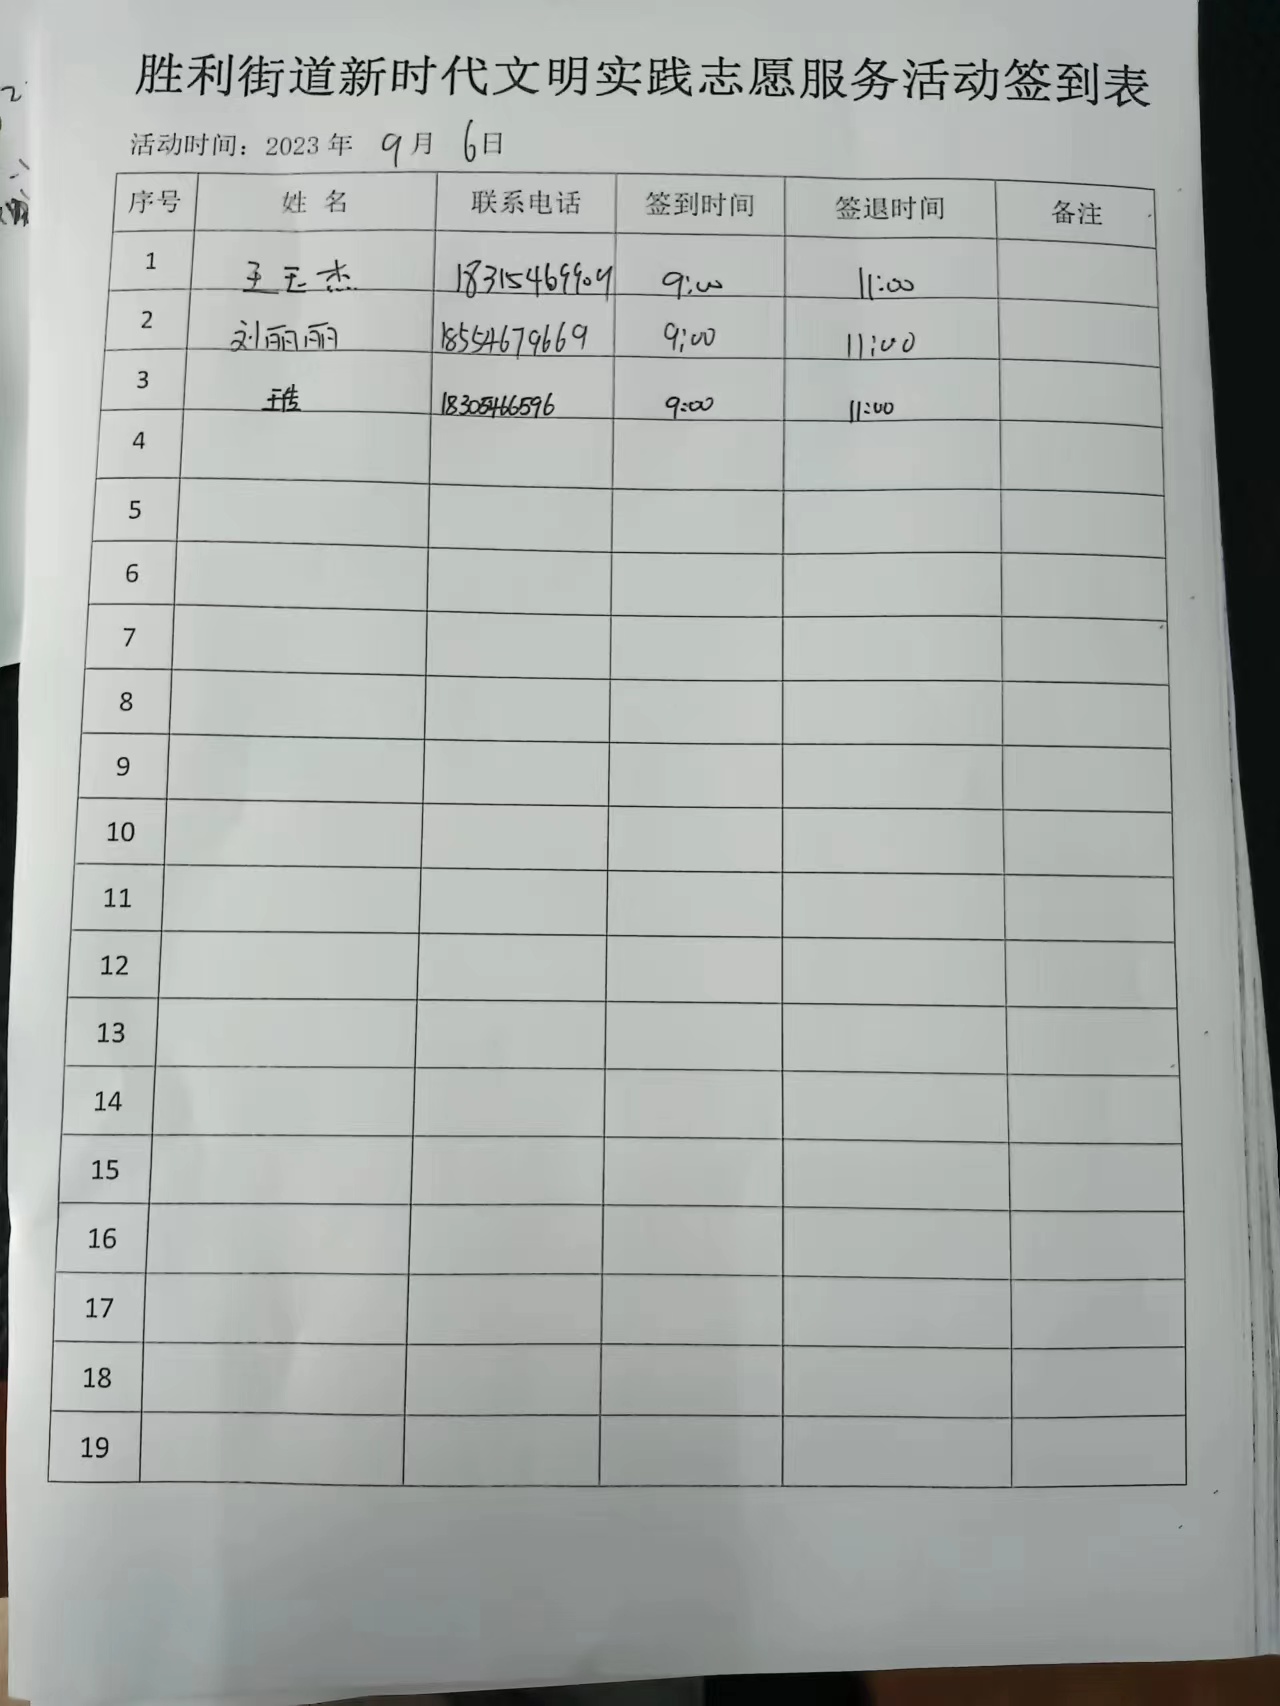 胜利街道新时代文明实践志愿服务活动签到表
活动时间：2023 年 9 月 6 日
序号 姓 名 联系电话 签到时间 签退时间 备注
1 王玉杰 18315469909 9:00 11:00
2 刘丽丽 18554679669 9:00 11:00
3 18305466596 9:00 11:00
4
5
6
7
8
9
10
11
12
13
14
15
16
17
18
19